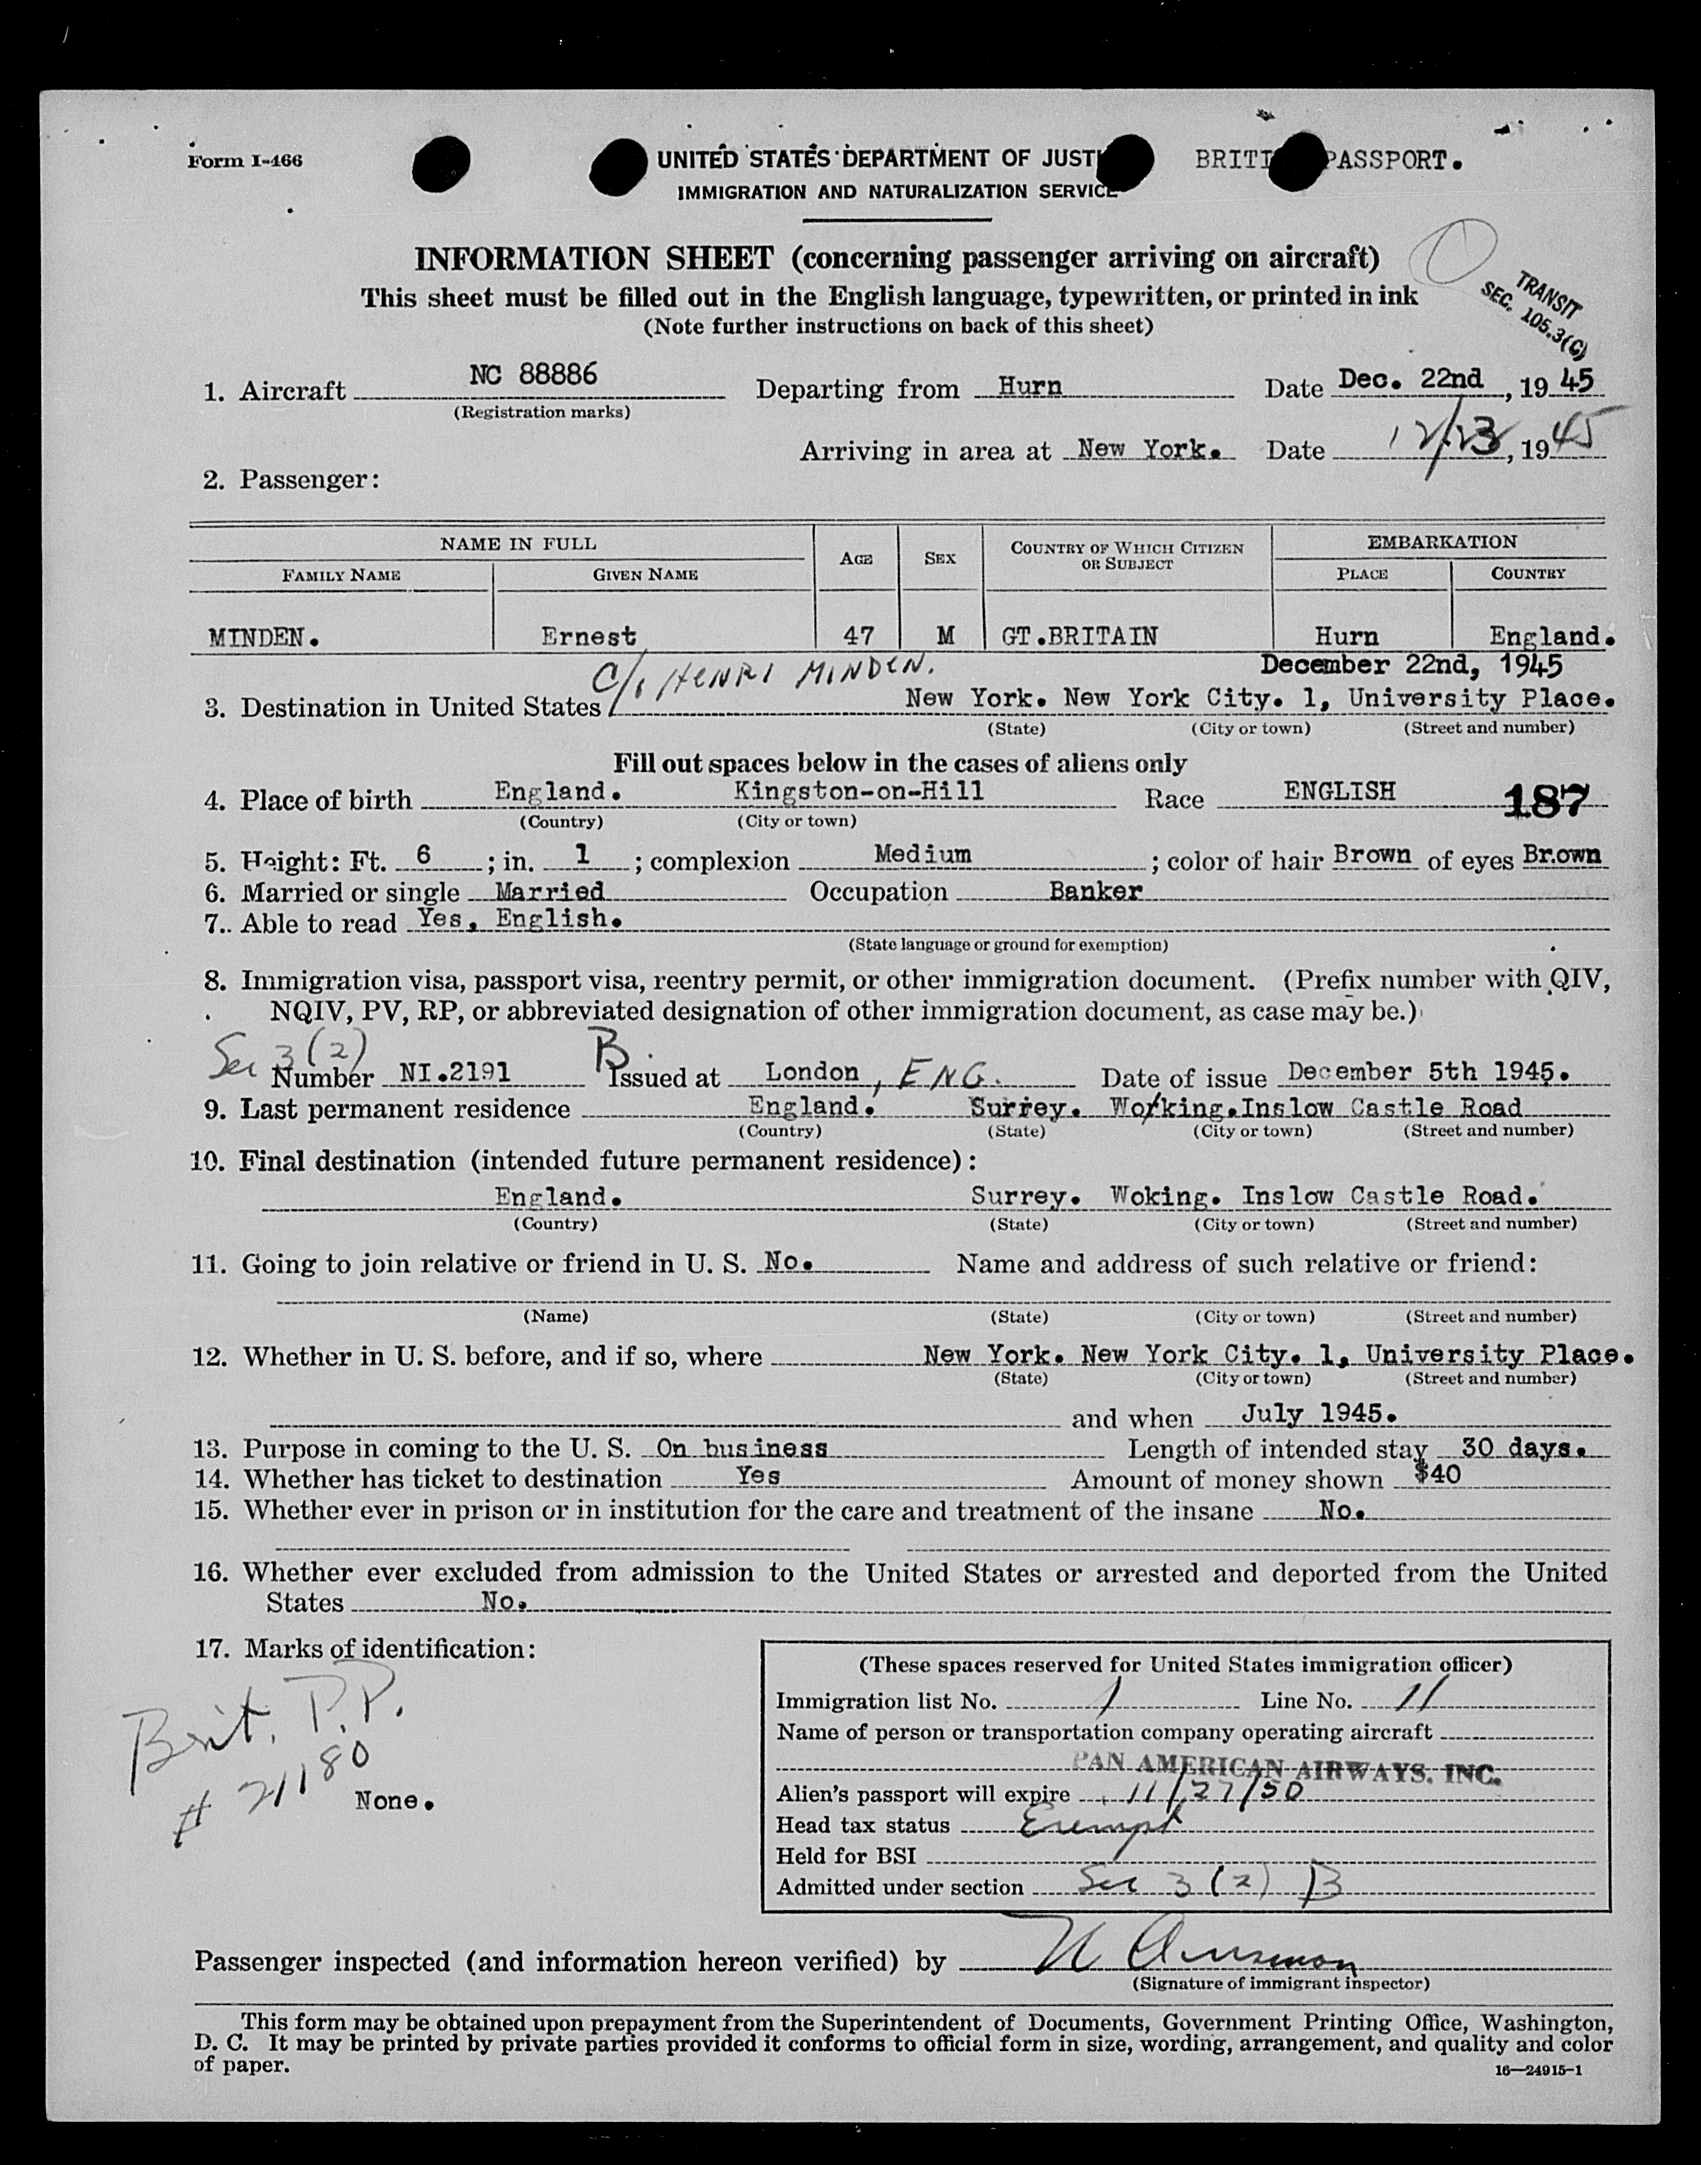 Form I-466
UNITED STATES DEPARTMENT OF JUST
BRITI PASSPORT.
IMMIGRATION AND NATURALIZATION SERVICE
INFORMATION SHEET (concerning passenger arriving on aircraft)
This sheet must be filled out in the English language, typewritten, or printed in ink
(Note further instructions on back of this sheet)
TRANSIT
SEC. 105.3(C)
1. Aircraft NC 88886 Departing from Hurn Date Dec. 22nd, 1945
(Registration marks)
Arriving in area at New York. Date 12/23, 1945
2. Passenger:
NAME IN FULL AGE SEX COUNTRY OF WHICH CITIZEN OR SUBJECT EMBARKATION
FAMILY NAME GIVEN NAME PLACE COUNTRY
MINDEN. Ernest 47 M GT.BRITAIN Hurn England.
C/o HENRI MINDEN. December 22nd, 1945
3. Destination in United States New York. New York City. 1, University Place.
(State) (City or town) (Street and number)
Fill out spaces below in the cases of aliens only
4. Place of birth England. Kingston-on-Hill Race ENGLISH 187
(Country) (City or town)
5. Height: Ft. 6; in. 1; complexion Medium; color of hair Brown of eyes Brown
6. Married or single Married Occupation Banker
7. Able to read Yes, English.
(State language or ground for exemption)
8. Immigration visa, passport visa, reentry permit, or other immigration document. (Prefix number with QIV,
NQIV, PV, RP, or abbreviated designation of other immigration document, as case may be.)
Sec 3 (2) B
Number NI.2191 Issued at London, ENG. Date of issue December 5th 1945.
9. Last permanent residence England. Surrey. Working.Inslow Castle Road
(Country) (State) (City or town) (Street and number)
10. Final destination (intended future permanent residence):
England. Surrey. Woking. Inslow Castle Road.
(Country) (State) (City or town) (Street and number)
11. Going to join relative or friend in U. S. No. Name and address of such relative or friend:
(Name) (State) (City or town) (Street and number)
12. Whether in U. S. before, and if so, where New York. New York City. 1, University Place.
(State) (City or town) (Street and number)
and when July 1945.
13. Purpose in coming to the U. S. On business Length of intended stay 30 days.
14. Whether has ticket to destination Yes Amount of money shown $40
15. Whether ever in prison or in institution for the care and treatment of the insane No.
16. Whether ever excluded from admission to the United States or arrested and deported from the United
States No.
17. Marks of identification:
Brit. P.P.
# 21180
None.
(These spaces reserved for United States immigration officer)
Immigration list No. 1 Line No. 11
Name of person or transportation company operating aircraft
PAN AMERICAN AIRWAYS, INC.
Alien's passport will expire 11/27/50
Head tax status Exempt
Held for BSI
Admitted under section Sec 3 (2) B
Passenger inspected (and information hereon verified) by
(Signature of immigrant inspector)
This form may be obtained upon prepayment from the Superintendent of Documents, Government Printing Office, Washington,
D. C. It may be printed by private parties provided it conforms to official form in size, wording, arrangement, and quality and color
of paper.
16—24915-1